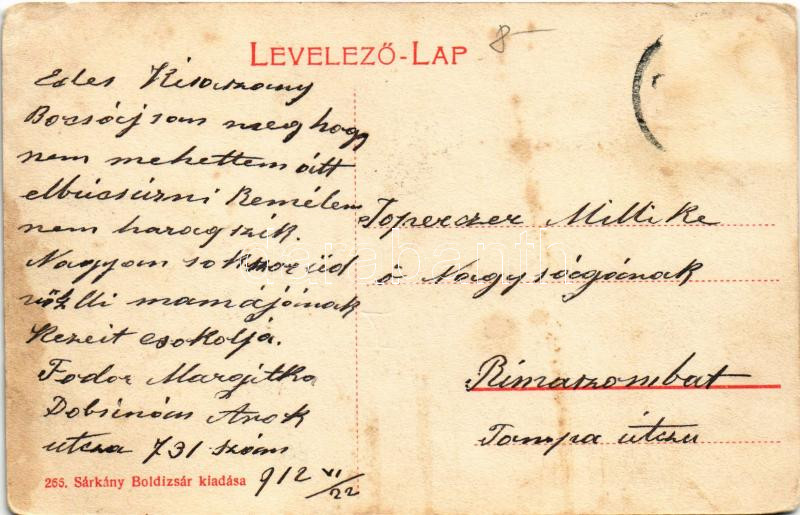 LEVELEZŐ-LAP
8-
Edes Kisaszany
Bocsájsan meg hogy
nem mehettem átt
elbúcsúzni Remélem
nem haragszik.
Nagyan sokszor üd
mamájának
Kezeit csokolja.
Fodor Margitka
Dobsinán Arok
utcza 731 szám
912 VI/22
Toperczer Millike
ő Nagyságának
Rimaszombat
Tompa útcza
265. Sárkány Boldizsár kiadása